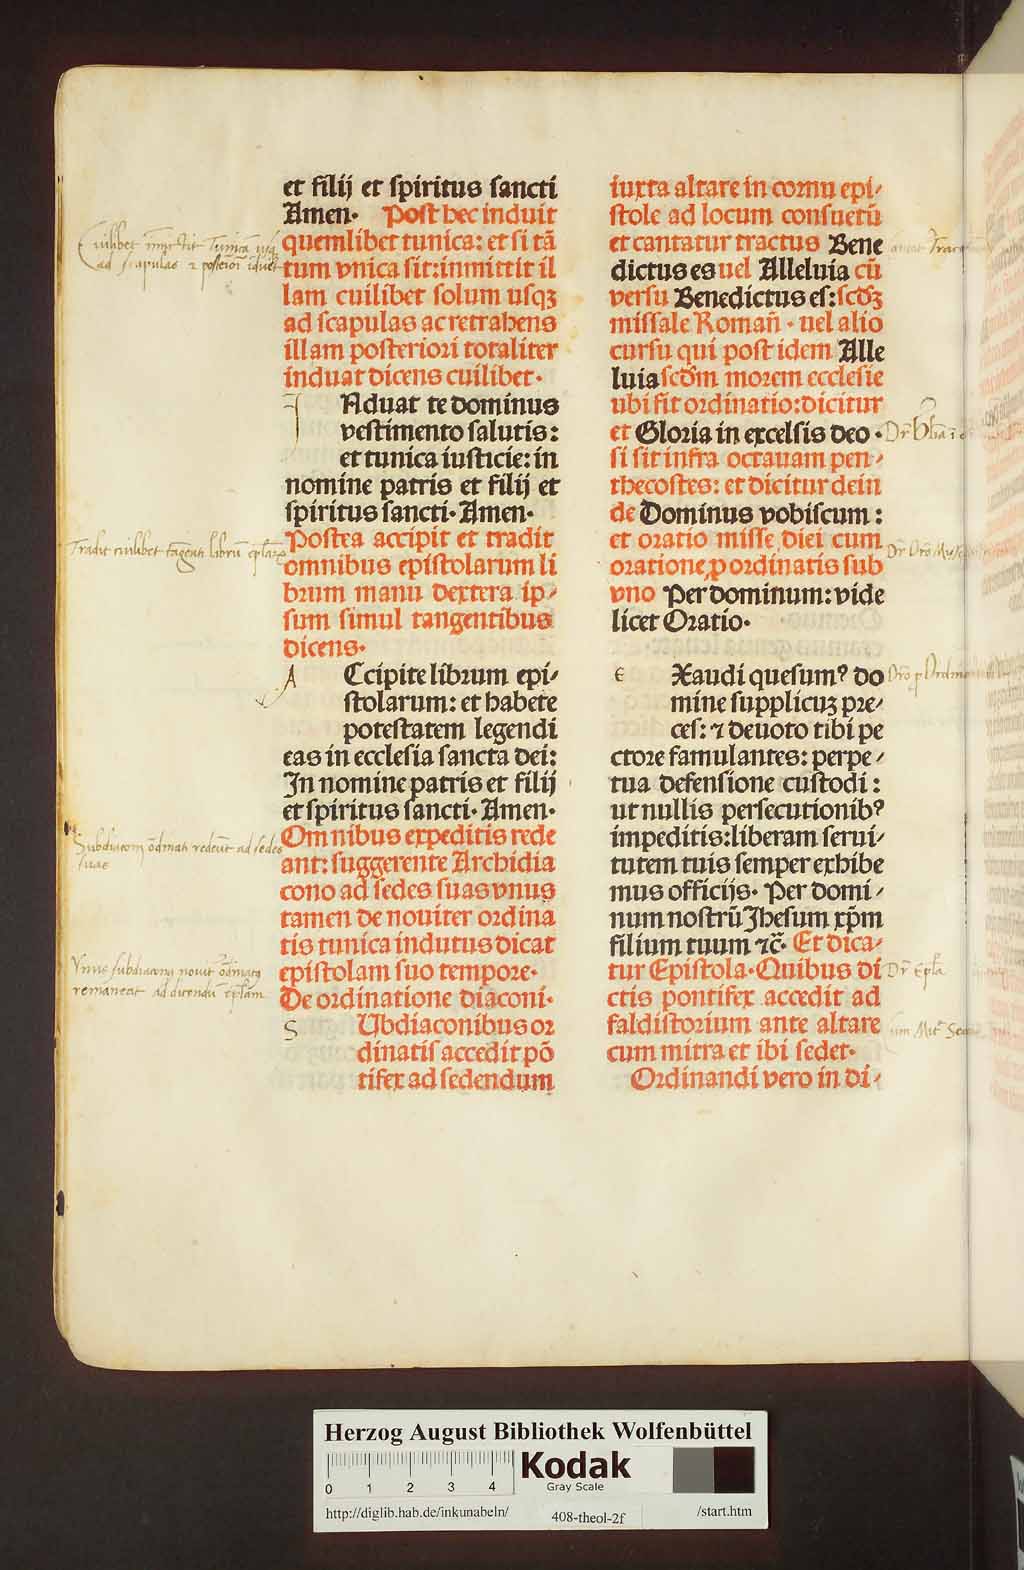 et filij et spiritus sancti
Amen· Post hec induit
quemlibet tunica: et si tā
tum vnica sit: inmittit il
lam cuilibet solum usqꝫ
ad scapulas ac retrahens
illam posteriori totaliter
induat dicens cuilibet·
I Nduat te dominus
vestimento salutis:
et tunica iusticie: in
nomine patris et filij et
spiritus sancti· Amen·
Postea accipit et tradit
omnibus epistolarum li
brum manu dextera ip⸗
sum simul tangentibus
dicens·
A Ccipite librum epi⸗
stolarum: et habete
potestatem legendi
eas in ecclesia sancta dei:
In nomine patris et filij
et spiritus sancti· Amen·
Omnibus expeditis rede
ant: suggerente Archidia
cono ad sedes suas vnus
tamen de noviter ordina
tis tunica indutus dicat
epistolam suo tempore·
De ordinatione diaconi·
S Ubdiaconibus or
dinatis accedit pō
tifex ad sedendum
iuxta altare in cornu epi⸗
stole ad locum consuetū
et cantatur tractus Bene
dictus es uel Alleluia cū
versu Benedictus es: scd̄ꝫ
missale Roman̄· uel alio
cursu qui post idem Alle
luia scd̄m morem ecclesie
ubi fit ordinatio: dicitur
et Gloria in excelsis deo·
si sit infra octauam pen⸗
thecostes: et dicitur dein
de Dominus vobiscum:
et oratio misse diei cum
oratione ꝓ ordinatis sub
vno Per dominum: vide
licet Oratio·
E Xaudi quesumꝰ do
mine supplicuꝫ pre⸗
ces: ⁊ deuoto tibi pe
ctore famulantes: perpe⸗
tua defensione custodi:
ut nullis persecutionibꝰ
impeditis: liberam serui⸗
tutem tuis semper exhibe
mus officijs· Per domi⸗
num nostrū Jhesum xp̄m
filium tuum ⁊c̄· Et dica⸗
tur Epistola· Quibus di
ctis pontifex accedit ad
faldistorium ante altare
cum mitra et ibi sedet·
Ordinandi vero in di⸗
Cuilibet
ad scapulas ⁊ posteriori
Tradit cuilibet tangenti librū
Subdiaconi ordinati redeūt ad sedes
suas
Vnus subdiaconus
remaneat ad dicendū
Herzog August Bibliothek Wolfenbüttel
0 1 2 3 4
Kodak
Gray Scale
http://diglib.hab.de/inkunabeln/ 408-theol-2f /start.htm